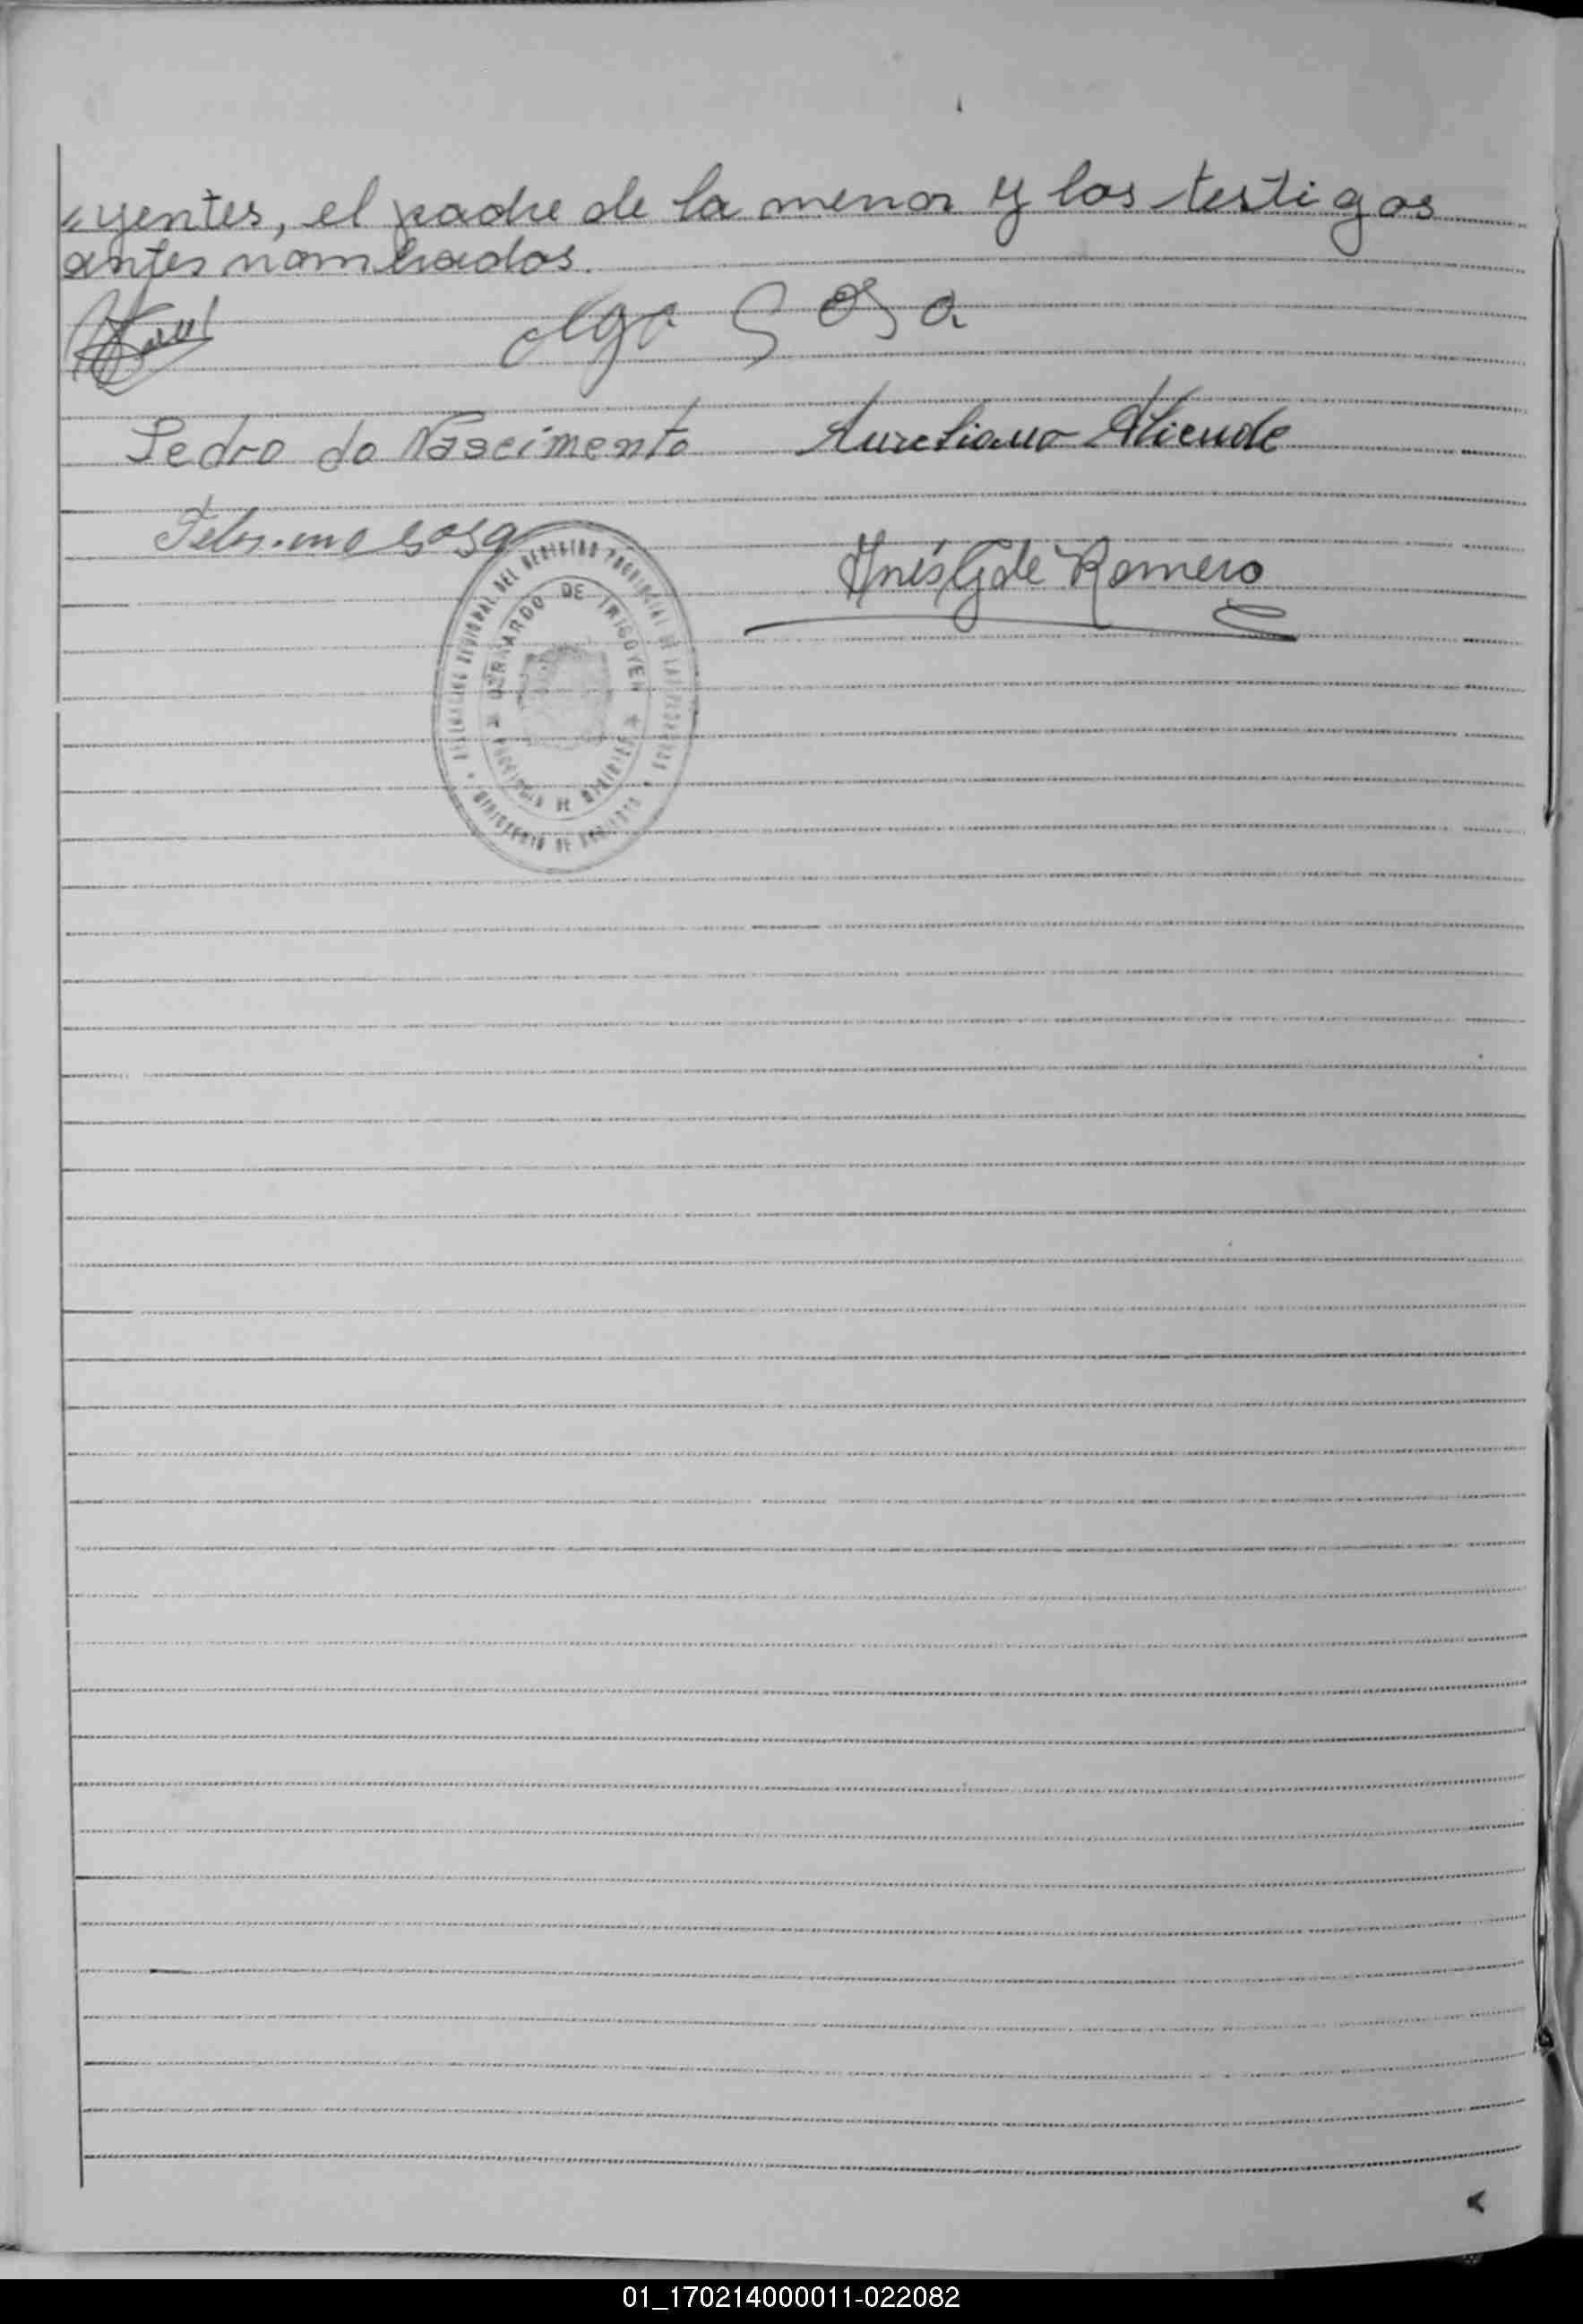 yentes, el padre de la menor y los testigos
antes nombrados.
Olga Sosa
Pedro do Nascimento Aureliano Aliende
Sosa
Inés G de Romero
DEL REGISTRO PROVINCIAL DE LAS PERSONAS
BERNARDO DE IRIGOYEN
PROVINCIA DE MISIONES
MINISTERIO DE GOBIERNO
01_170214000011-022082